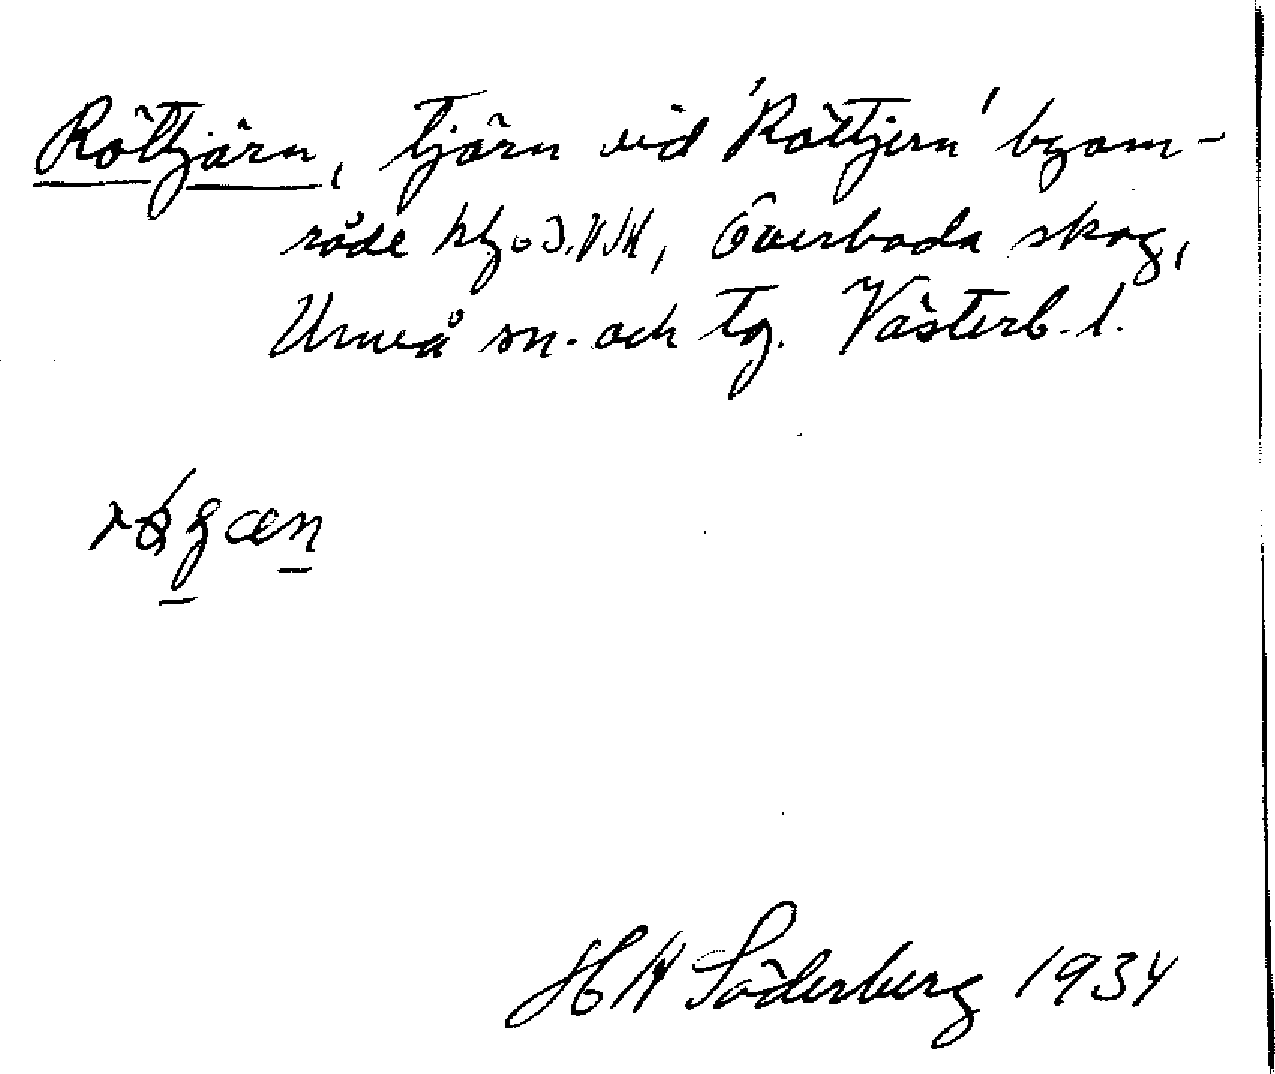 Röttjärn, tjärn vid 'Röttjern' byom-
råde Överboda skog,
Umeå sn. och tg. Västerb. l.
H A Söderberg 1934